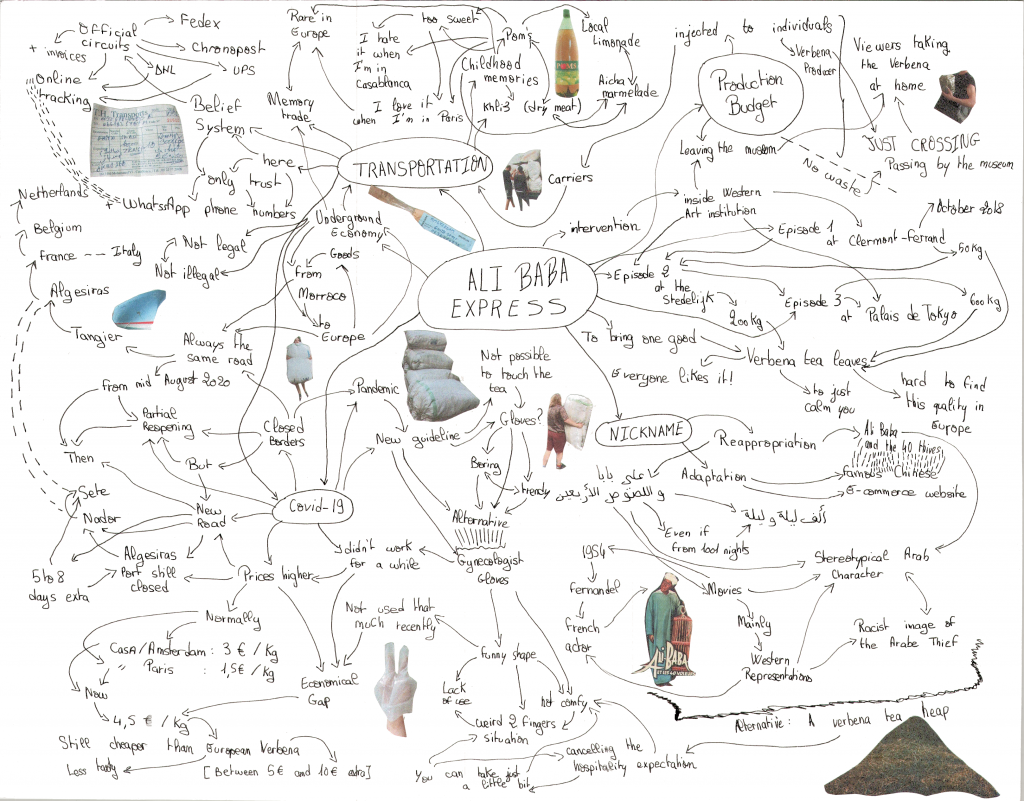 Official
circuits
+ invoices
Fedex
Chronopost
DNL
UPS
Online
tracking
Belief
System
Rare in
Europe
Memory
trade
too sweet
I hate
it when
I'm in
Casablanca
I love it
when I'm in Paris
Pom's
Childhood
memories
Khli3 (dry meat)
Local
Limonade
Aicha
marmelade
injected to individuals
Verbena
Producer
Production
Budget
Viewers taking
the Verbena
at home
JUST CROSSING
Passing by the museum
Leaving the museum
No waste
TRANSPORTATION
Carriers
here
only trust
+ WhatsApp phone numbers
Netherlands
Belgium
France -- Italy
Algesiras
Tangier
Not legal
Not illegal
Underground
Economy
Goods
from
Morroco
to
Europe
Always the
same road
intervention
inside Western
Art institution
Episode 1
at Clermont-Ferrand
October 2018
50 Kg
ALI BABA
EXPRESS
Episode 2
at the
Stedelijk
200 Kg
Episode 3
at Palais de Tokyo
600 Kg
To bring one good
Everyone likes it!
Verbena tea leaves
to just
calm you
hard to find
this quality in
Europe
From mid August 2020
Partial
Reopening
Then
But
Closed
borders
Pandemic
New guideline
Not possible
to touch the
tea
Gloves?
Boring
trendy
Alternative
Gynecologist
Gloves
NICKNAME
Reappropriation
Ali Baba
and the 40 thives
Adaptation
famous Chinese
E-commerce website
علي بابا
و اللصوص الأربعين
ألف ليلة و ليلة
Even if
from 1001 nights
Sete
Nador
New
Road
Covid-19
Algesiras
Port still
closed
5 to 8
days extra
Prices higher
didn't work
for a while
Normally
Casa/Amsterdam: 3 € / Kg
" Paris : 1,5€ / Kg
Now
4,5 € / Kg
Economical
Gap
Still cheaper than European Verbena
Less tasty
[Between 5€ and 10€ extra]
Not used that
much recently
funny shape
Lack
of use
weird 2 fingers
situation
not comfy
You can take just
a little bit
cancelling the
hospitality expectation
1954
Fernandel
french
actor
ALI-BABA
Movies
Mainly
Western
Representations
Stereotypical Arab
Character
Racist image of
the Arabe Thief
Alternative: A verbena tea heap